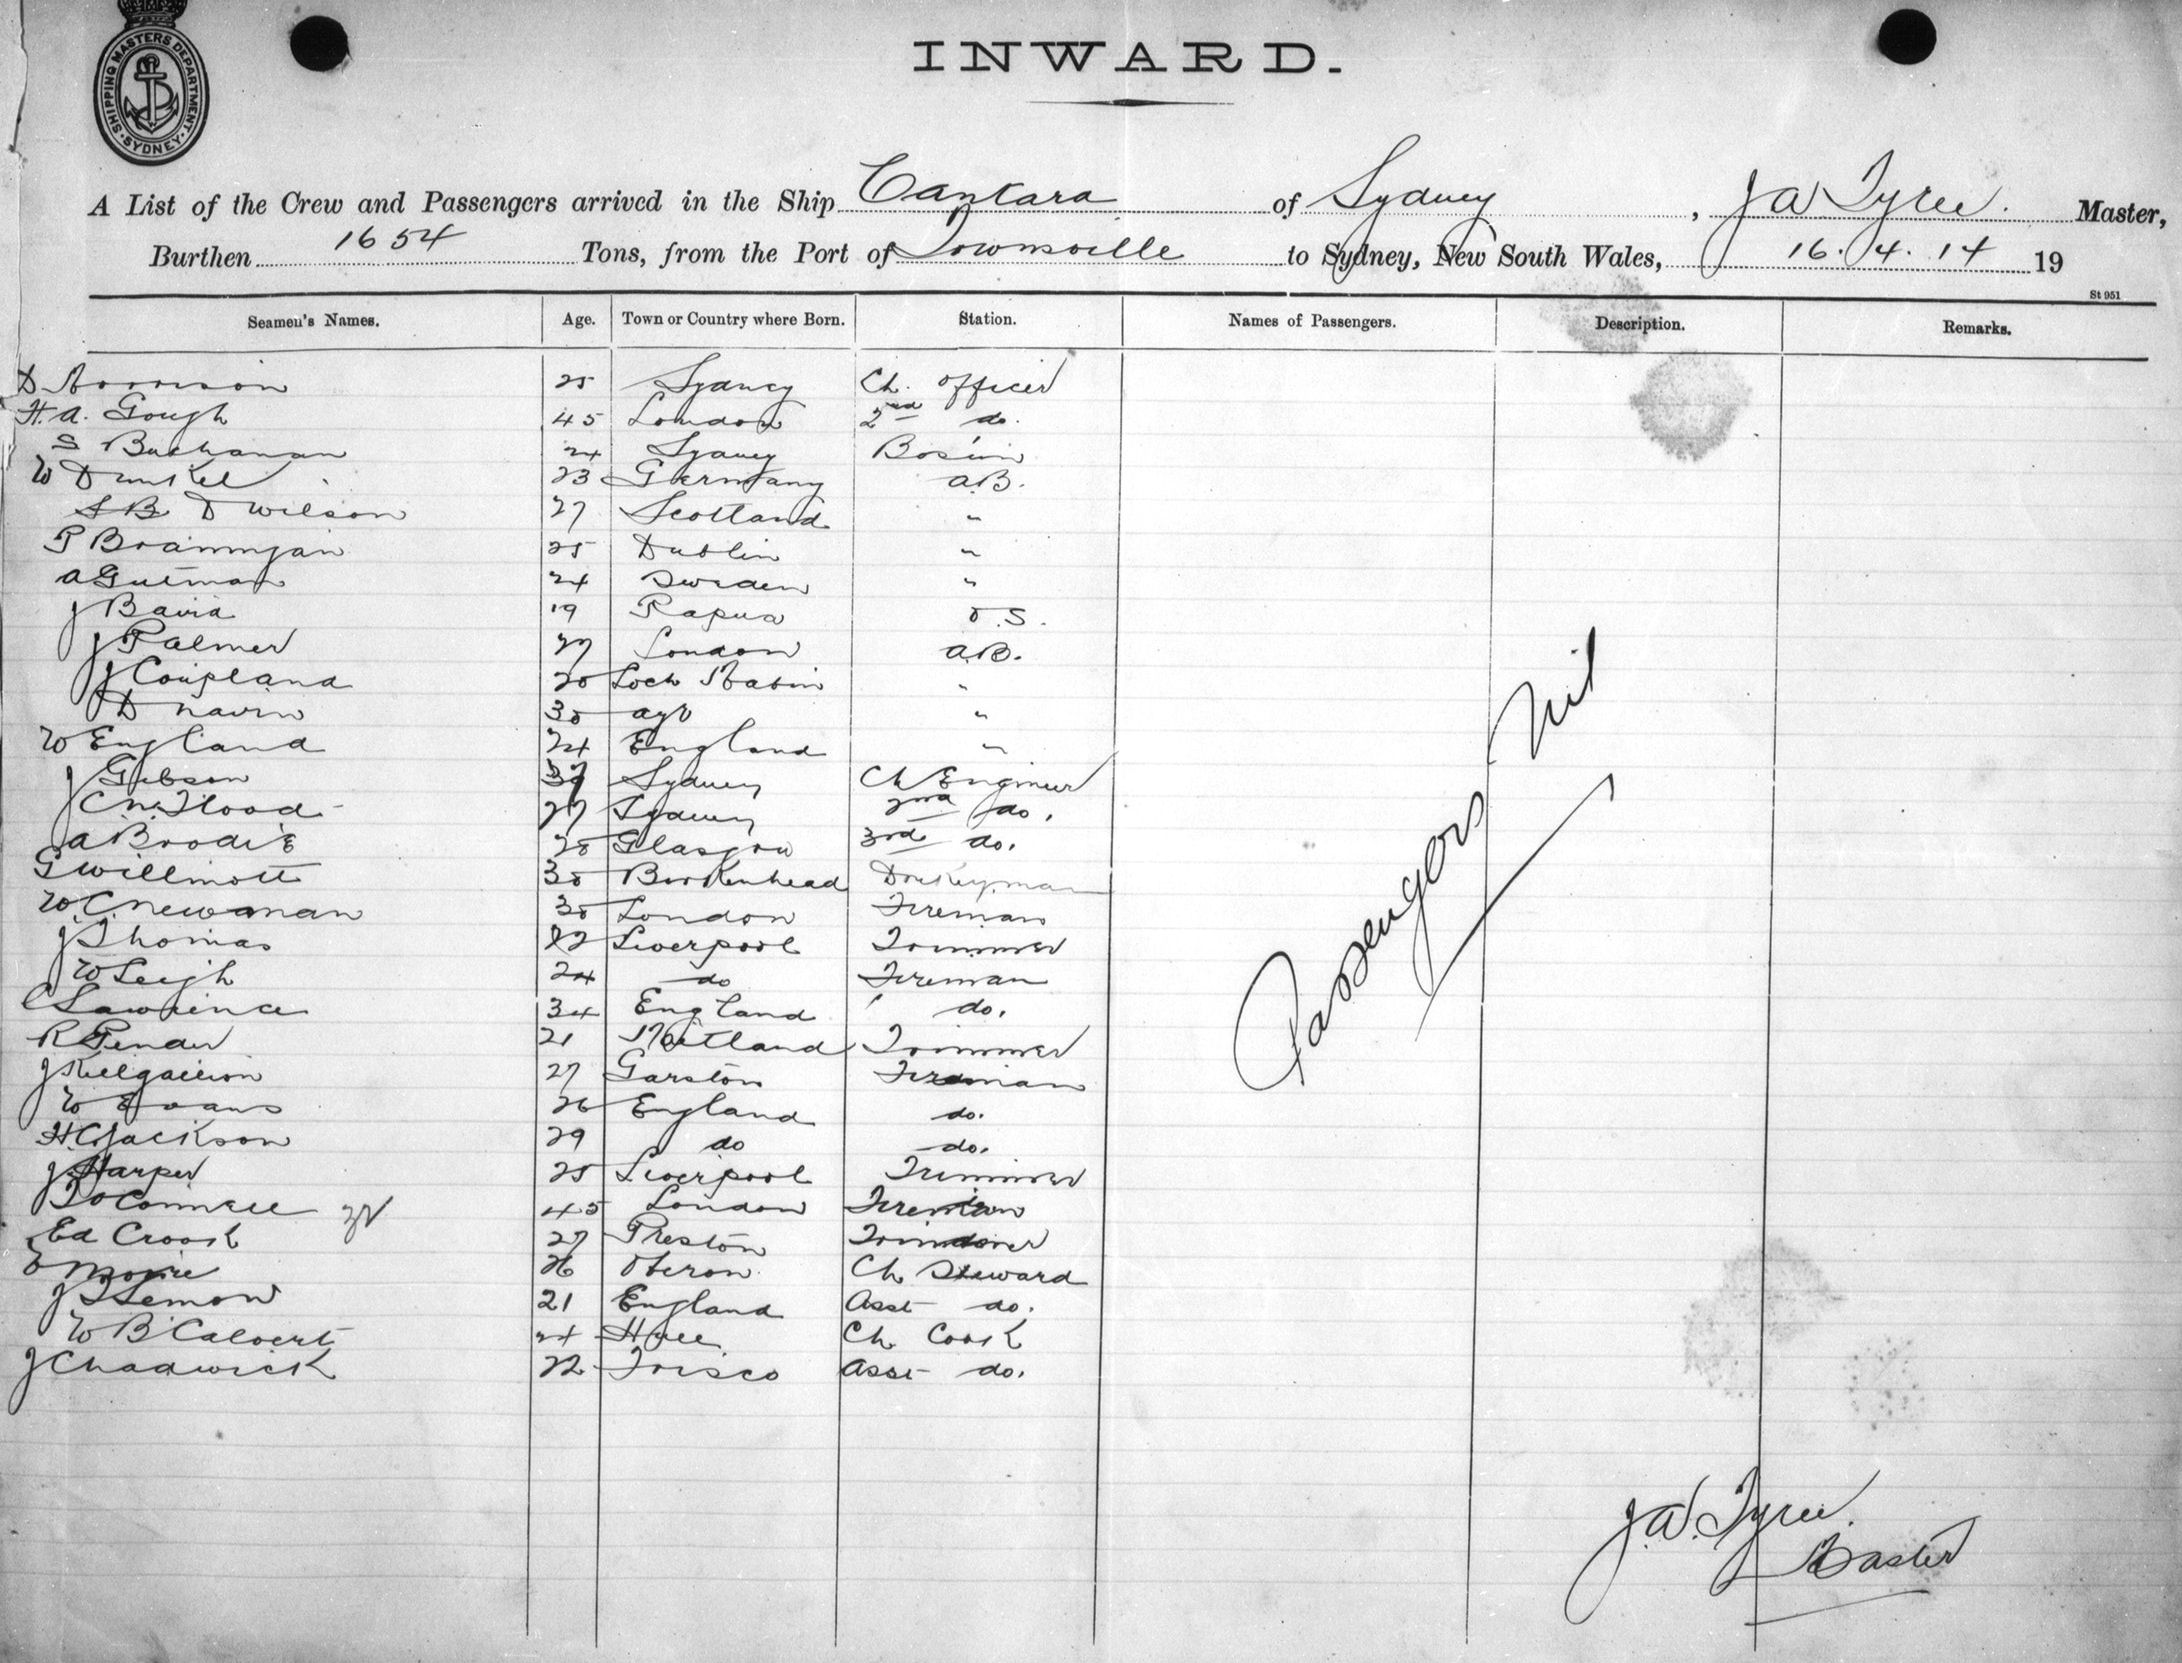 SHIPPING MASTERS DEPARTMENT · SYDNEY ·
INWARD.
A List of the Crew and Passengers arrived in the Ship Cantara of Sydney, J A Tyree. Master,
Burthen 1654 Tons, from the Port of Townsville to Sydney, New South Wales, 16. 4. 14 19
St 951
Seamen's Names. Age. Town or Country where Born. Station. Names of Passengers. Description. Remarks.
D 25 Sydney Ch. Officer
H. A. Gough 45 London 2nd do.
S Buchanan 24 Sydney Bos'un
W Dunkel 23 Germany A.B.
D Wilson 27 Scotland "
P Brannigan 25 Dublin "
A Gutman 24 Sweden "
J 19 Papua O.S.
J Palmer 27 London A.B.
J Coupland Loch "
D Navin "
W England 24 England "
J Gibson Sydney Ch Engineer
27 Sydney 2nd do.
A Brodie 28 Glasgow 3rd do.
G Willmott 38 Birkenhead Donkeyman
W. C. Newman 38 London Fireman
J Thomas Liverpool Trimmer
W Leigh 24 do Fireman
C Lawrence 34 England do.
R Pender 21 Maitland Trimmer
J Kilgallion 27 Garston Fireman
W Evans 26 England do.
H. C. Jackson 29 do do.
J. Harper 25 Liverpool Trimmer
T O Connell 45 London Fireman
Ed Crook 27 Preston Trimmer
26 Oberon Ch Steward
J T Lemon 21 England Asst do.
W B Calvert 24 Hull Ch. Cook
J Chadwick 22 Frisco Asst do.
Passengers Nil
J. A. Tyree.
Master